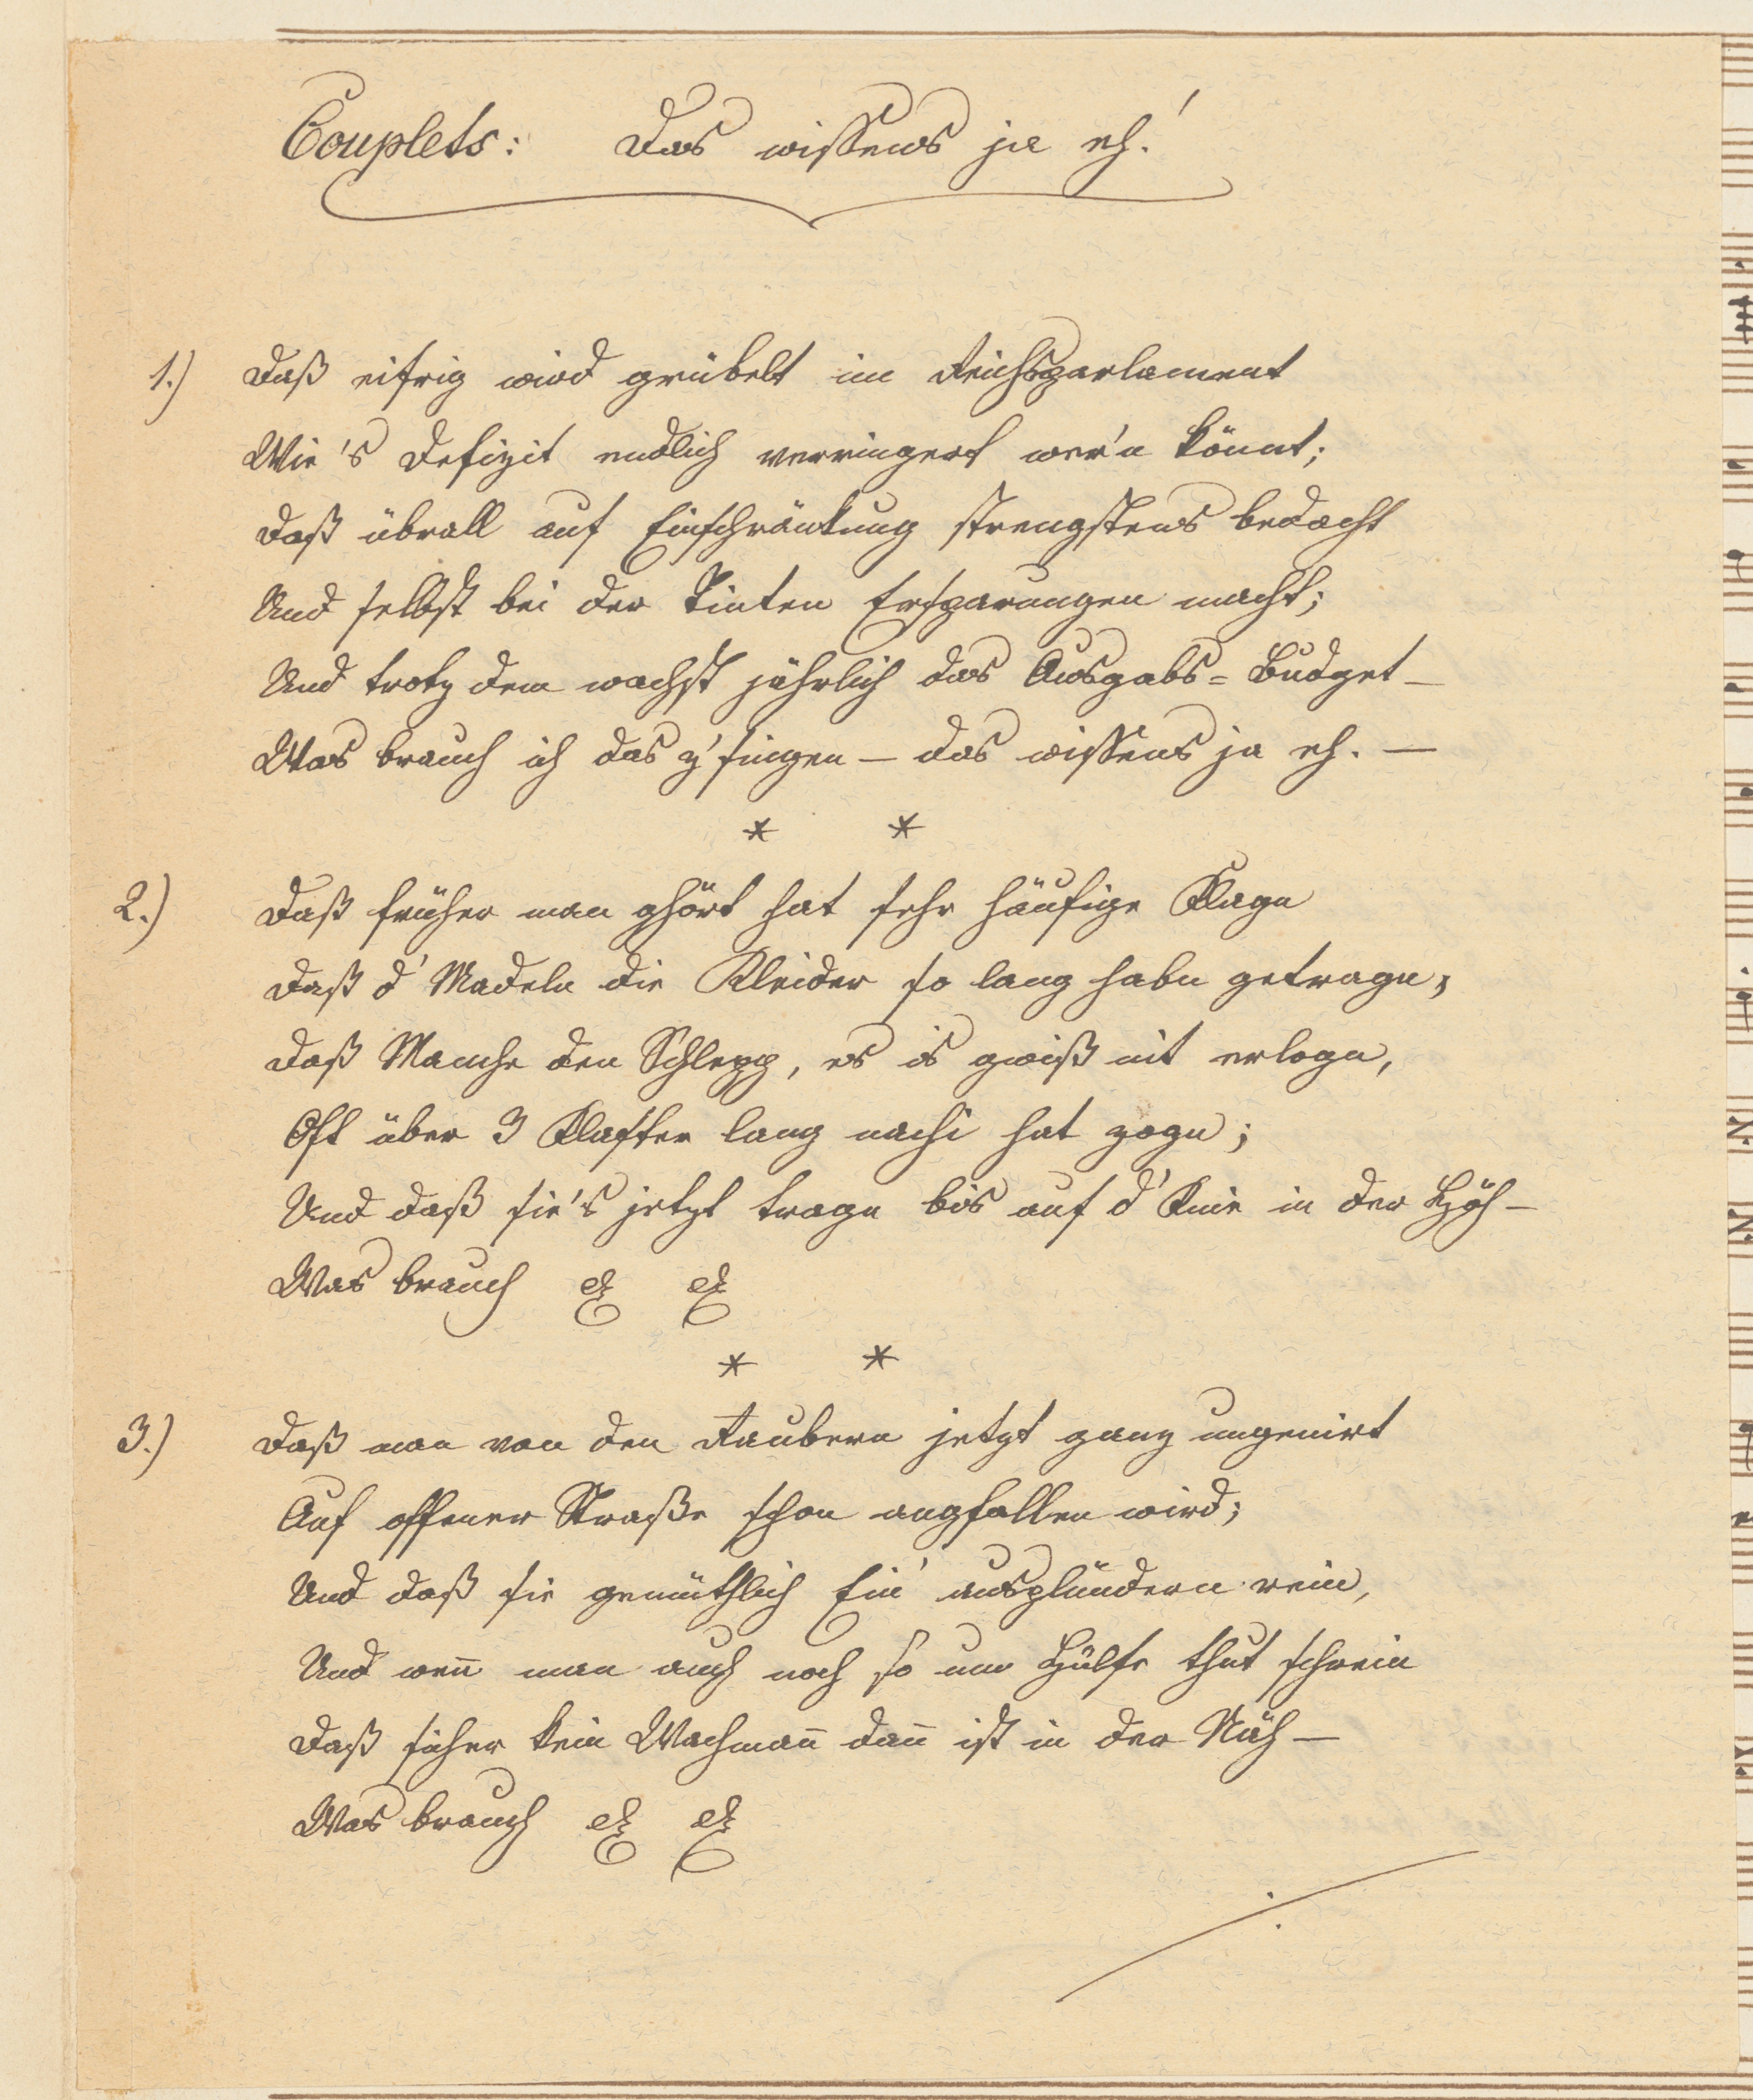 Couplets: Das wissens ja eh!
1.) Daß eifrig wird grübelt im Reichsparlament
Wie's Defizit endlich verringert wer'n könnt;
Daß übrall auf Einschränkung strengstens bedacht
Und selbst bei der Tinten Ersparungen macht;
Und trotz dem wachst jährlich das Ausgabs=Budget –
Was brauch ich das z'singen – das wissens ja eh. –
* *
2.) Daß früher man ghört hat sehr häufige Klagn
Daß d' Madeln die Kleider so lang habn getragn,
Daß Manche den Schlepp, es is gwiß nit erlogn,
Oft über 3 Klafter lang nachi hat zogn;
Und daß sie's jetzt tragn bis auf d' Knie in der Höh –
Was brauch etc etc
* *
3.) Daß man von den Raubern jetzt ganz ungenirt
Auf offener Straße schon angfallen wird;
Und daß sie gemüthlich Ein' ausplündern rein,
Und weñ man auch noch so um Hülfe thut schrein
Daß sicher kein Wachmañ dañ ist in der Näh –
Was brauch etc etc